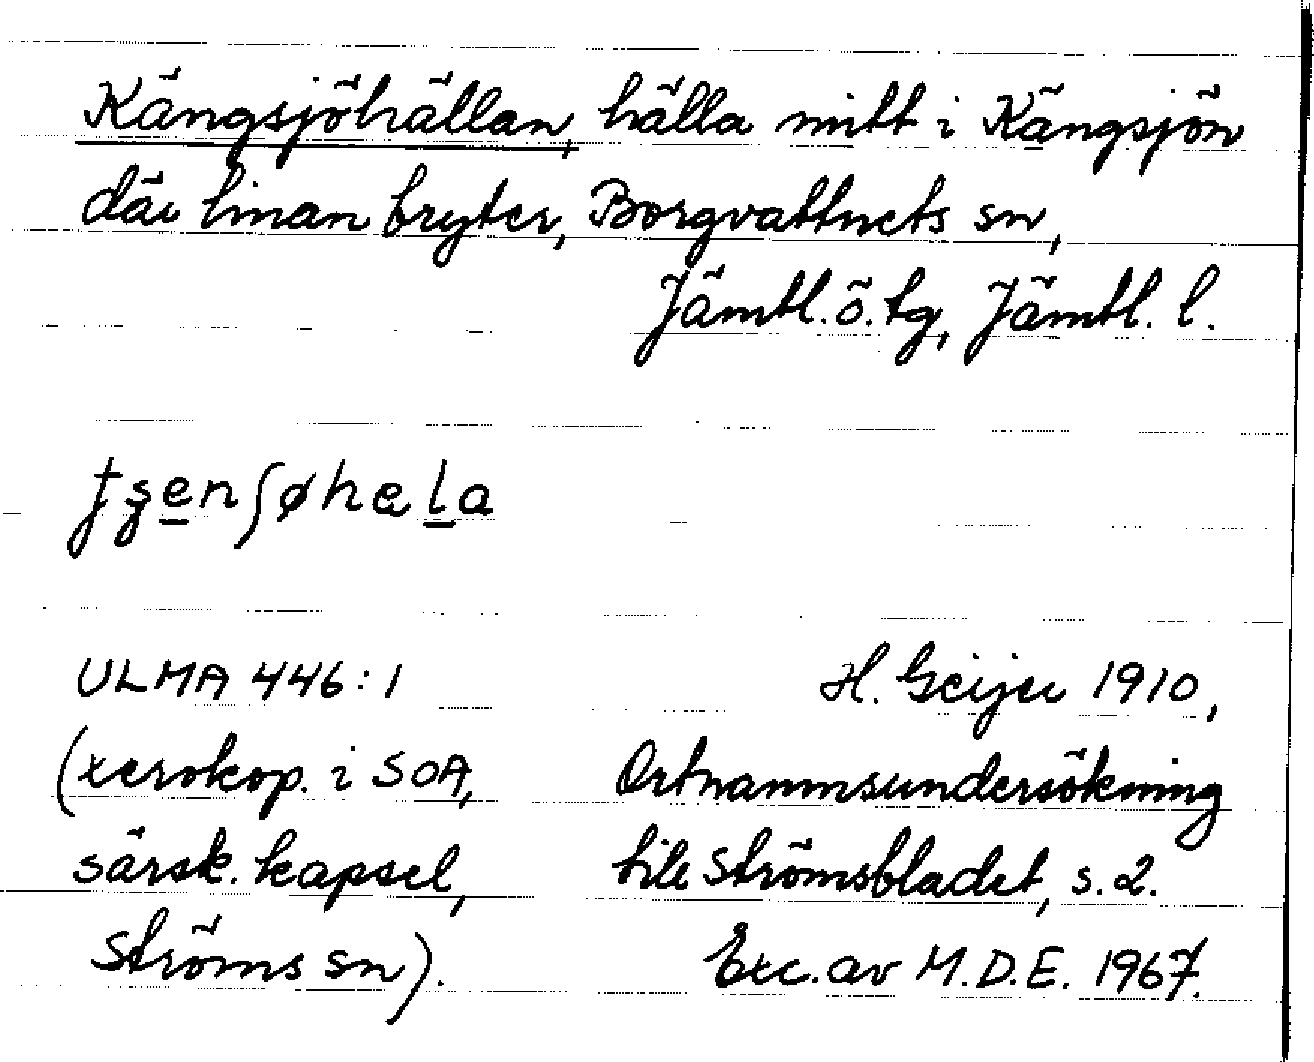 Kängsjöhällan, hälla mitt i Kängsjön
där linan bryter, Borgvattnets sn,
Jämtl. ö. tg, Jämtl. l.
ULMA 446:1
(xerokop. i SOA,
särsk. kapsel,
Ströms sn).
H. Geijer 1910,
Ortnamnsundersökning
till Strömsbladet, s. 2.
Exc. av M.D.E. 1967.